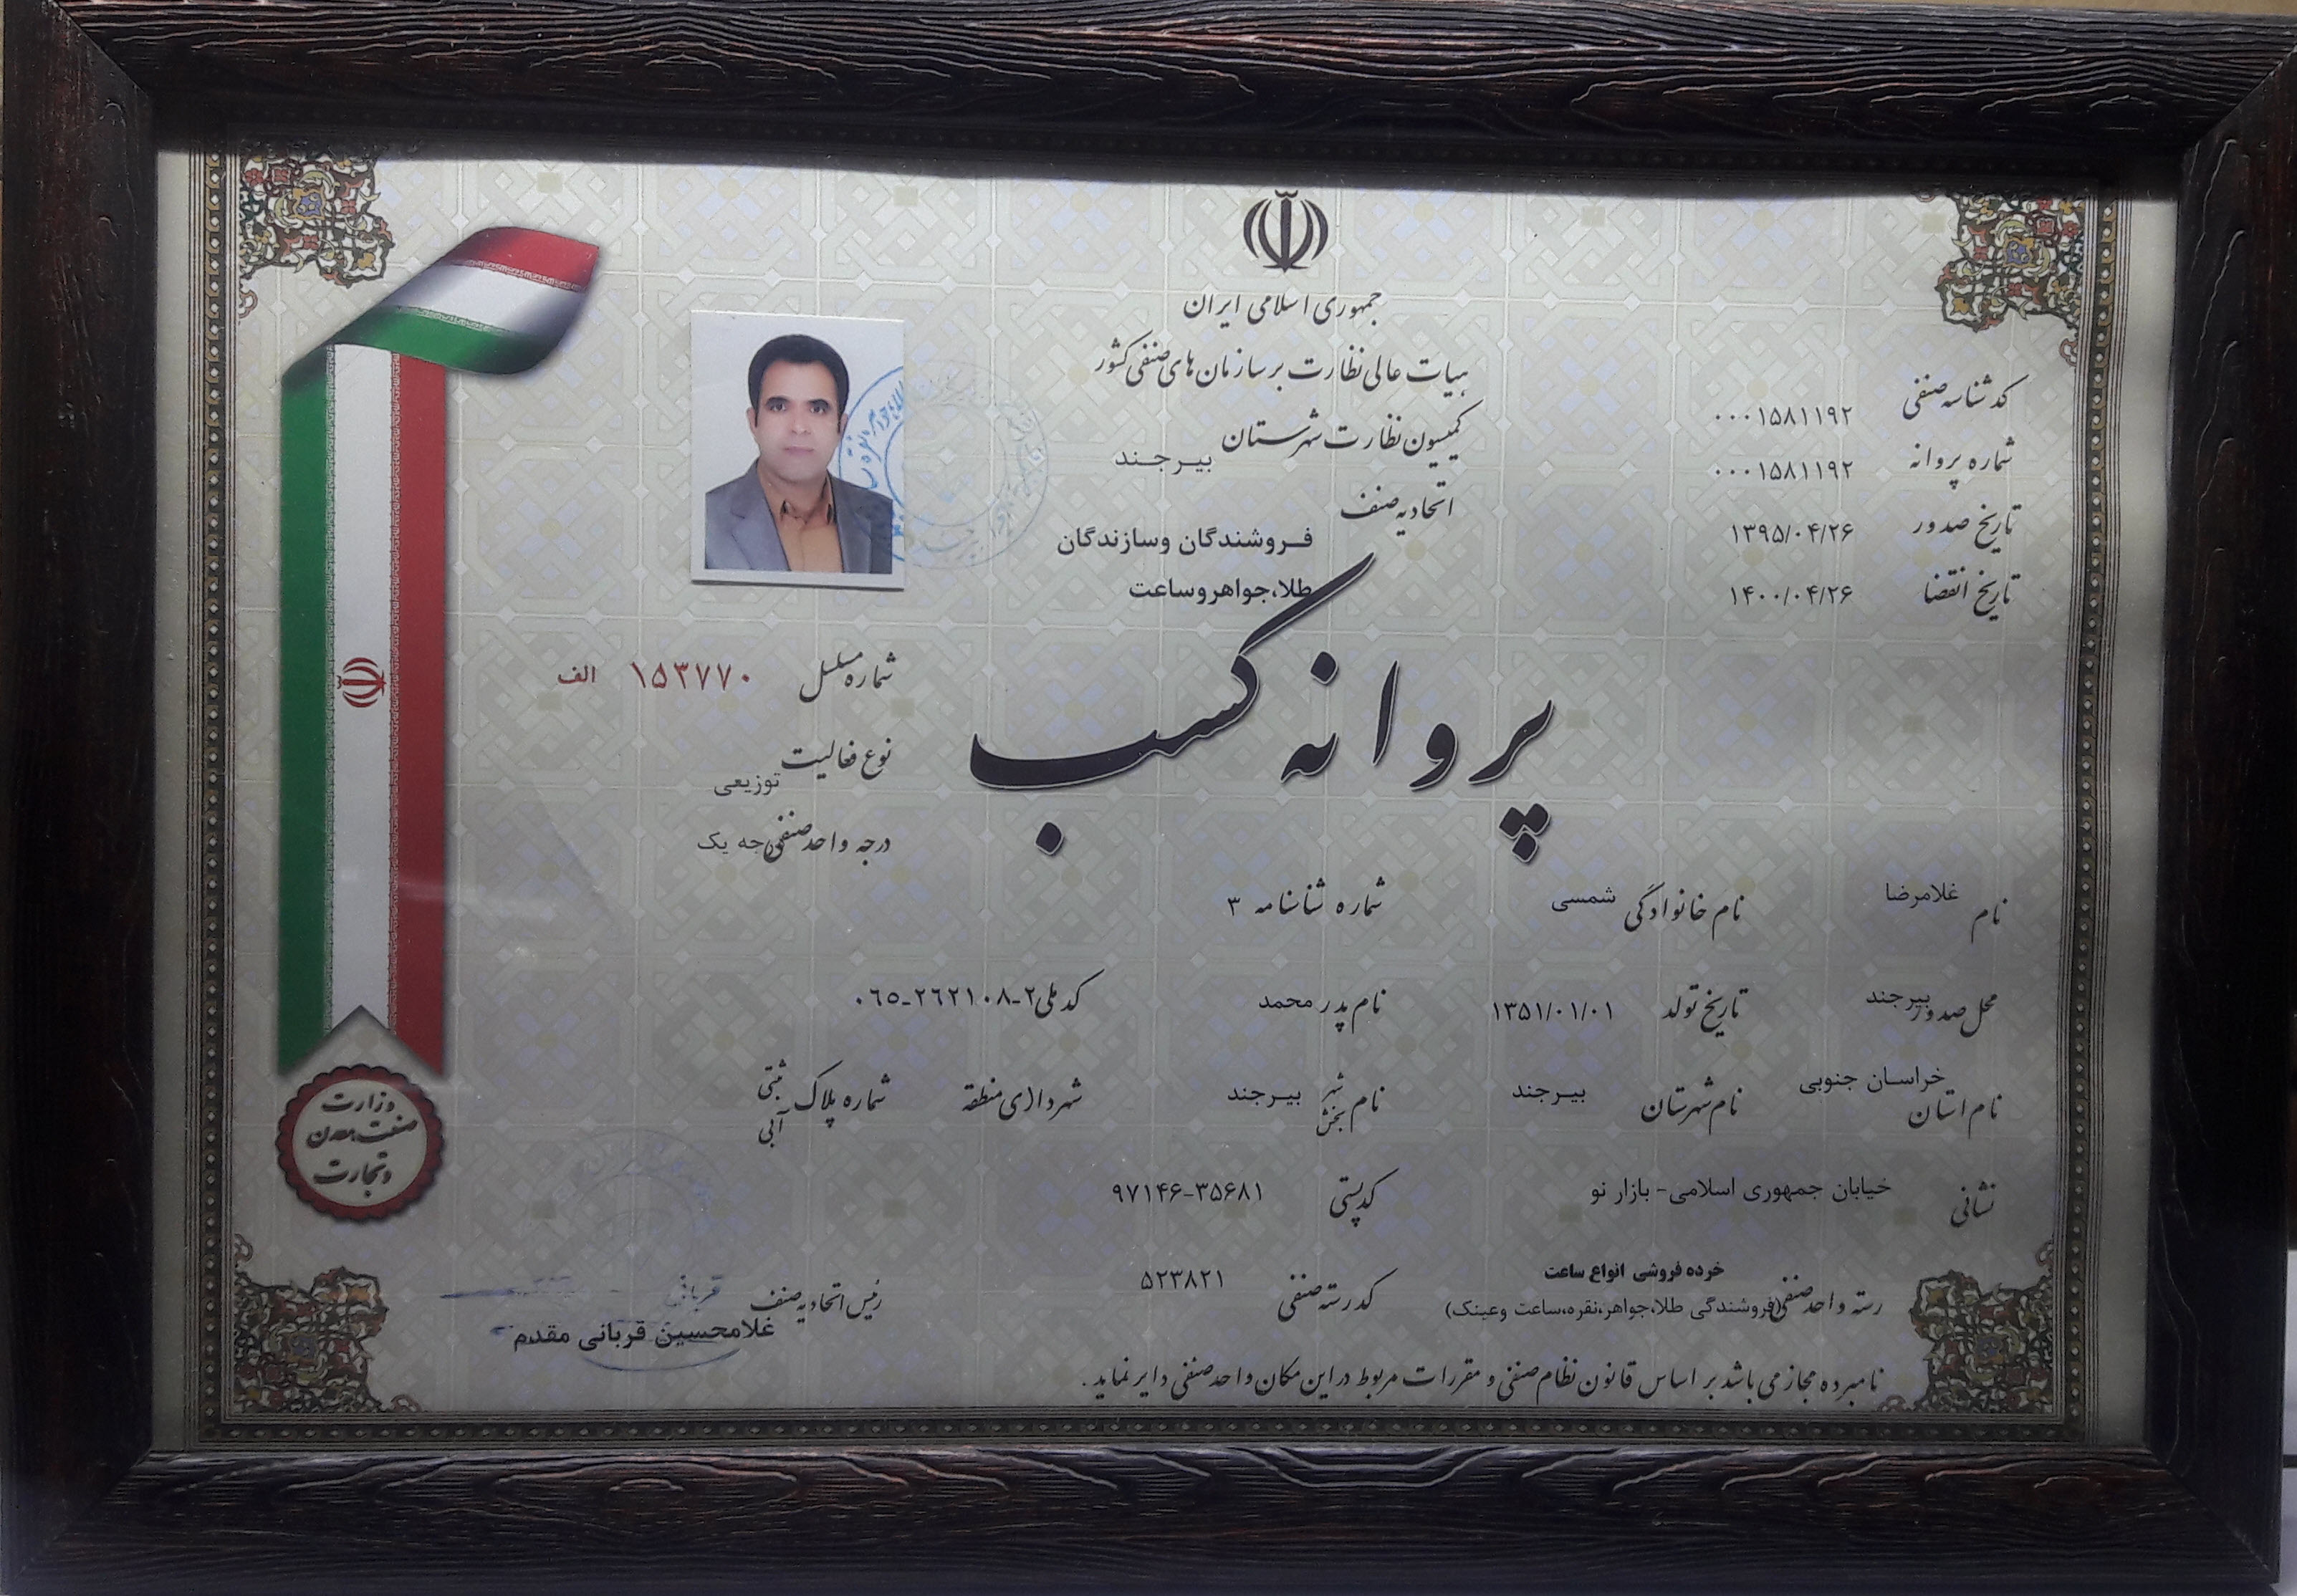 جمهوری اسلامی ایران
هیات عالی نظارت بر سازمان های صنفی کشور
کمیسیون نظارت شهرستان بیرجند
اتحادیه صنف
فروشندگان وسازندگان
طلا،جواهروساعت
کد شناسه صنفی ۰۰۰۱۵۸۱۱۹۲
شماره پروانه ۰۰۰۱۵۸۱۱۹۲
تاریخ صدور ۱۳۹۵/۰۴/۲۶
تاریخ انقضا ۱۴۰۰/۰۴/۲۶
پروانه کسب
شماره مسلسل ۱۵۳۷۷۰ الف
نوع فعالیت توزیعی
درجه واحد صنفی درجه یک
نام غلامرضا نام خانوادگی شمسی شماره شناسنامه ۳
محل صدور بیرجند تاریخ تولد ۱۳۵۱/۰۱/۰۱ نام پدر محمد کد ملی ۰۶۵-۲۶۲۱۰۸-۲
نام استان خراسان جنوبی نام شهرستان بیرجند نام شهر بخش بیرجند شهرداری منطقه شماره پلاک ثبتی آبی
نشانی خیابان جمهوری اسلامی- بازار نو کدپستی ۹۷۱۴۶-۳۵۶۸۱
رسته واحد صنفی خرده فروشی انواع ساعت کد رسته صنفی ۵۲۳۸۲۱
(فروشندگی طلا،جواهر،نقره،ساعت وعینک)
رئیس اتحادیه صنف
غلامحسین قربانی مقدم
نامبرده مجاز می باشد بر اساس قانون نظام صنفی و مقررات مربوط در این مکان واحد صنفی دایر نماید.
وزارت
صنعت، معدن
و تجارت